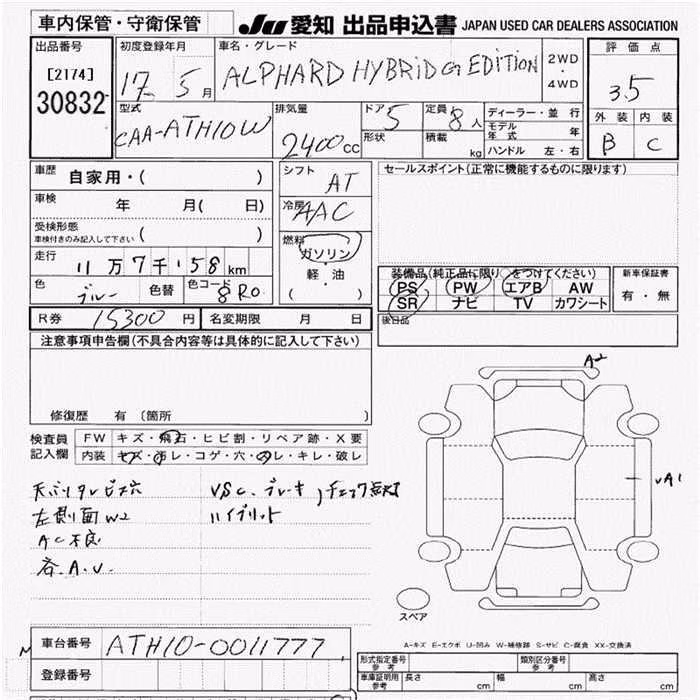 車内保管・守衛保管
JU 愛知 出品申込書 JAPAN USED CAR DEALERS ASSOCIATION
出品番号
[2174]
30832
初度登録年月
17 5月
車名・グレード
ALPHARD HYBRID G EDITION
2WD
・
4WD
評価点
3.5
外装 内装
B C
型式
CAA-ATH10W
排気量
2400cc
ドア 5
形状
定員 8人
積載 kg
ディーラー・並行
モデル年式 年
ハンドル 左・右
車歴 自家用・( )
車検 年 月( 日)
受検形態
車検付きのみ記入して下さい ( )
走行 11万7千158km
色 ブルー 色替 色コード 8R0
シフト AT
冷房 AAC
燃料 ガソリン
・
軽・油
( )
R券 15300円 名変期限 月 日
セールスポイント(正常に機能するものに限ります)
装備品(純正品に限り○をつけてください)
PS PW エアB AW
SR ナビ TV カワシート
新車保証書
有・無
後日品
注意事項申告欄(不具合内容等は具体的に記入して下さい)
修復歴 有 〔箇所 〕
検査員記入欄
FW キズ・飛石・ヒビ割・リペア跡・X要
内装 キズ・汚レ・コゲ・穴・スレ・キレ・破レ
左側面W2
AC不良
各A.U.
VSC、ブレーキ、チェック点灯
ハイブリット
A2
A1
スペア
A-キズ E-エクボ U-凹み W-補修跡 S-サビ C-腐食 XX-交換済
車台番号 ATH10-0011777
登録番号
形式指定番号 参考
類別区分番号 参考
車庫証明用 参考 長さ cm 幅 cm 高さ cm